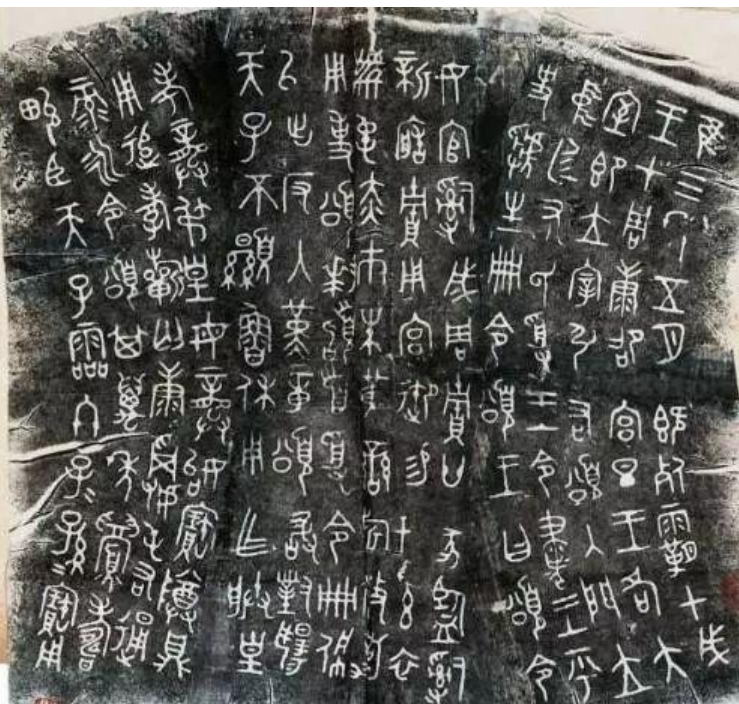 隹三年五月既死霸甲戌
王才周康卲宮旦王各大
室即立宰引右頌入門立
中廷尹氏受王令書王乎
史虢生冊令頌王曰頌令
女官𤔲成周貯廿家監𤔲
新造貯用宮御易女玄衣
黹屯赤巿朱黃䜌旂攸勒
用事頌拜𩒨首受令冊佩
㠯出反入堇章頌敢對揚
天子不顯魯休用乍朕皇
考龏弔皇母龏始寶尊鼎
用追孝祈匄康屯右通
彔永令頌其萬年眉壽
畯臣天子霝冬子子孫孫寶用